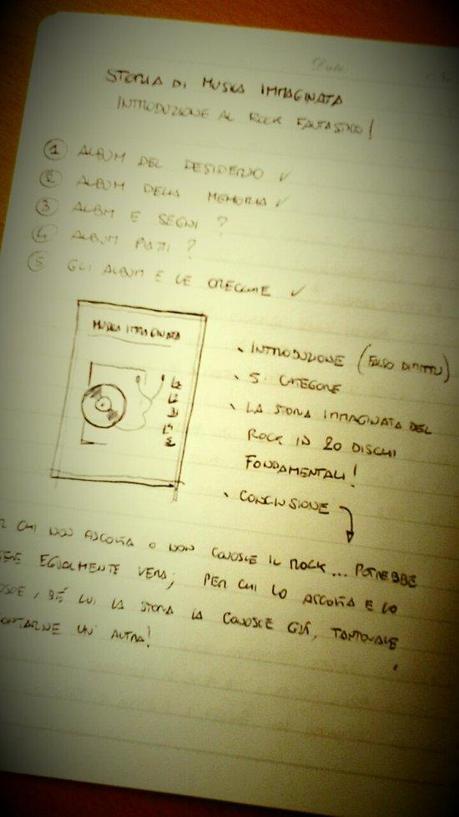 Date
STORIA DI MUSICA IMMAGINATA
INTRODUZIONE AL ROCK FANTASTICO!
① ALBUM DEL DESIDERIO ✓
② ALBUM DELLA MEMORIA ✓
③ ALBUM E SEGNI ?
④ ALBUM PIATTI ?
⑤ GLI ALBUM E LE ORECCHIE ✓
MUSICA IMMAGINATA
INTRODUZIONE (FALSO DIRITTO)
5 CATEGORIE
LA STORIA IMMAGINATA DEL
ROCK IN 20 DISCHI
FONDAMENTALI!
CONCLUSIONE
CHI NON ASCOLTA O NON CONOSCE IL ROCK... POTREBBE
EGUALMENTE VERA; PER CHI LO ASCOLTA E LO
BÈ LUI LA STORIA LA CONOSCE GIÀ, TANTOVALE
UN'ALTRA!